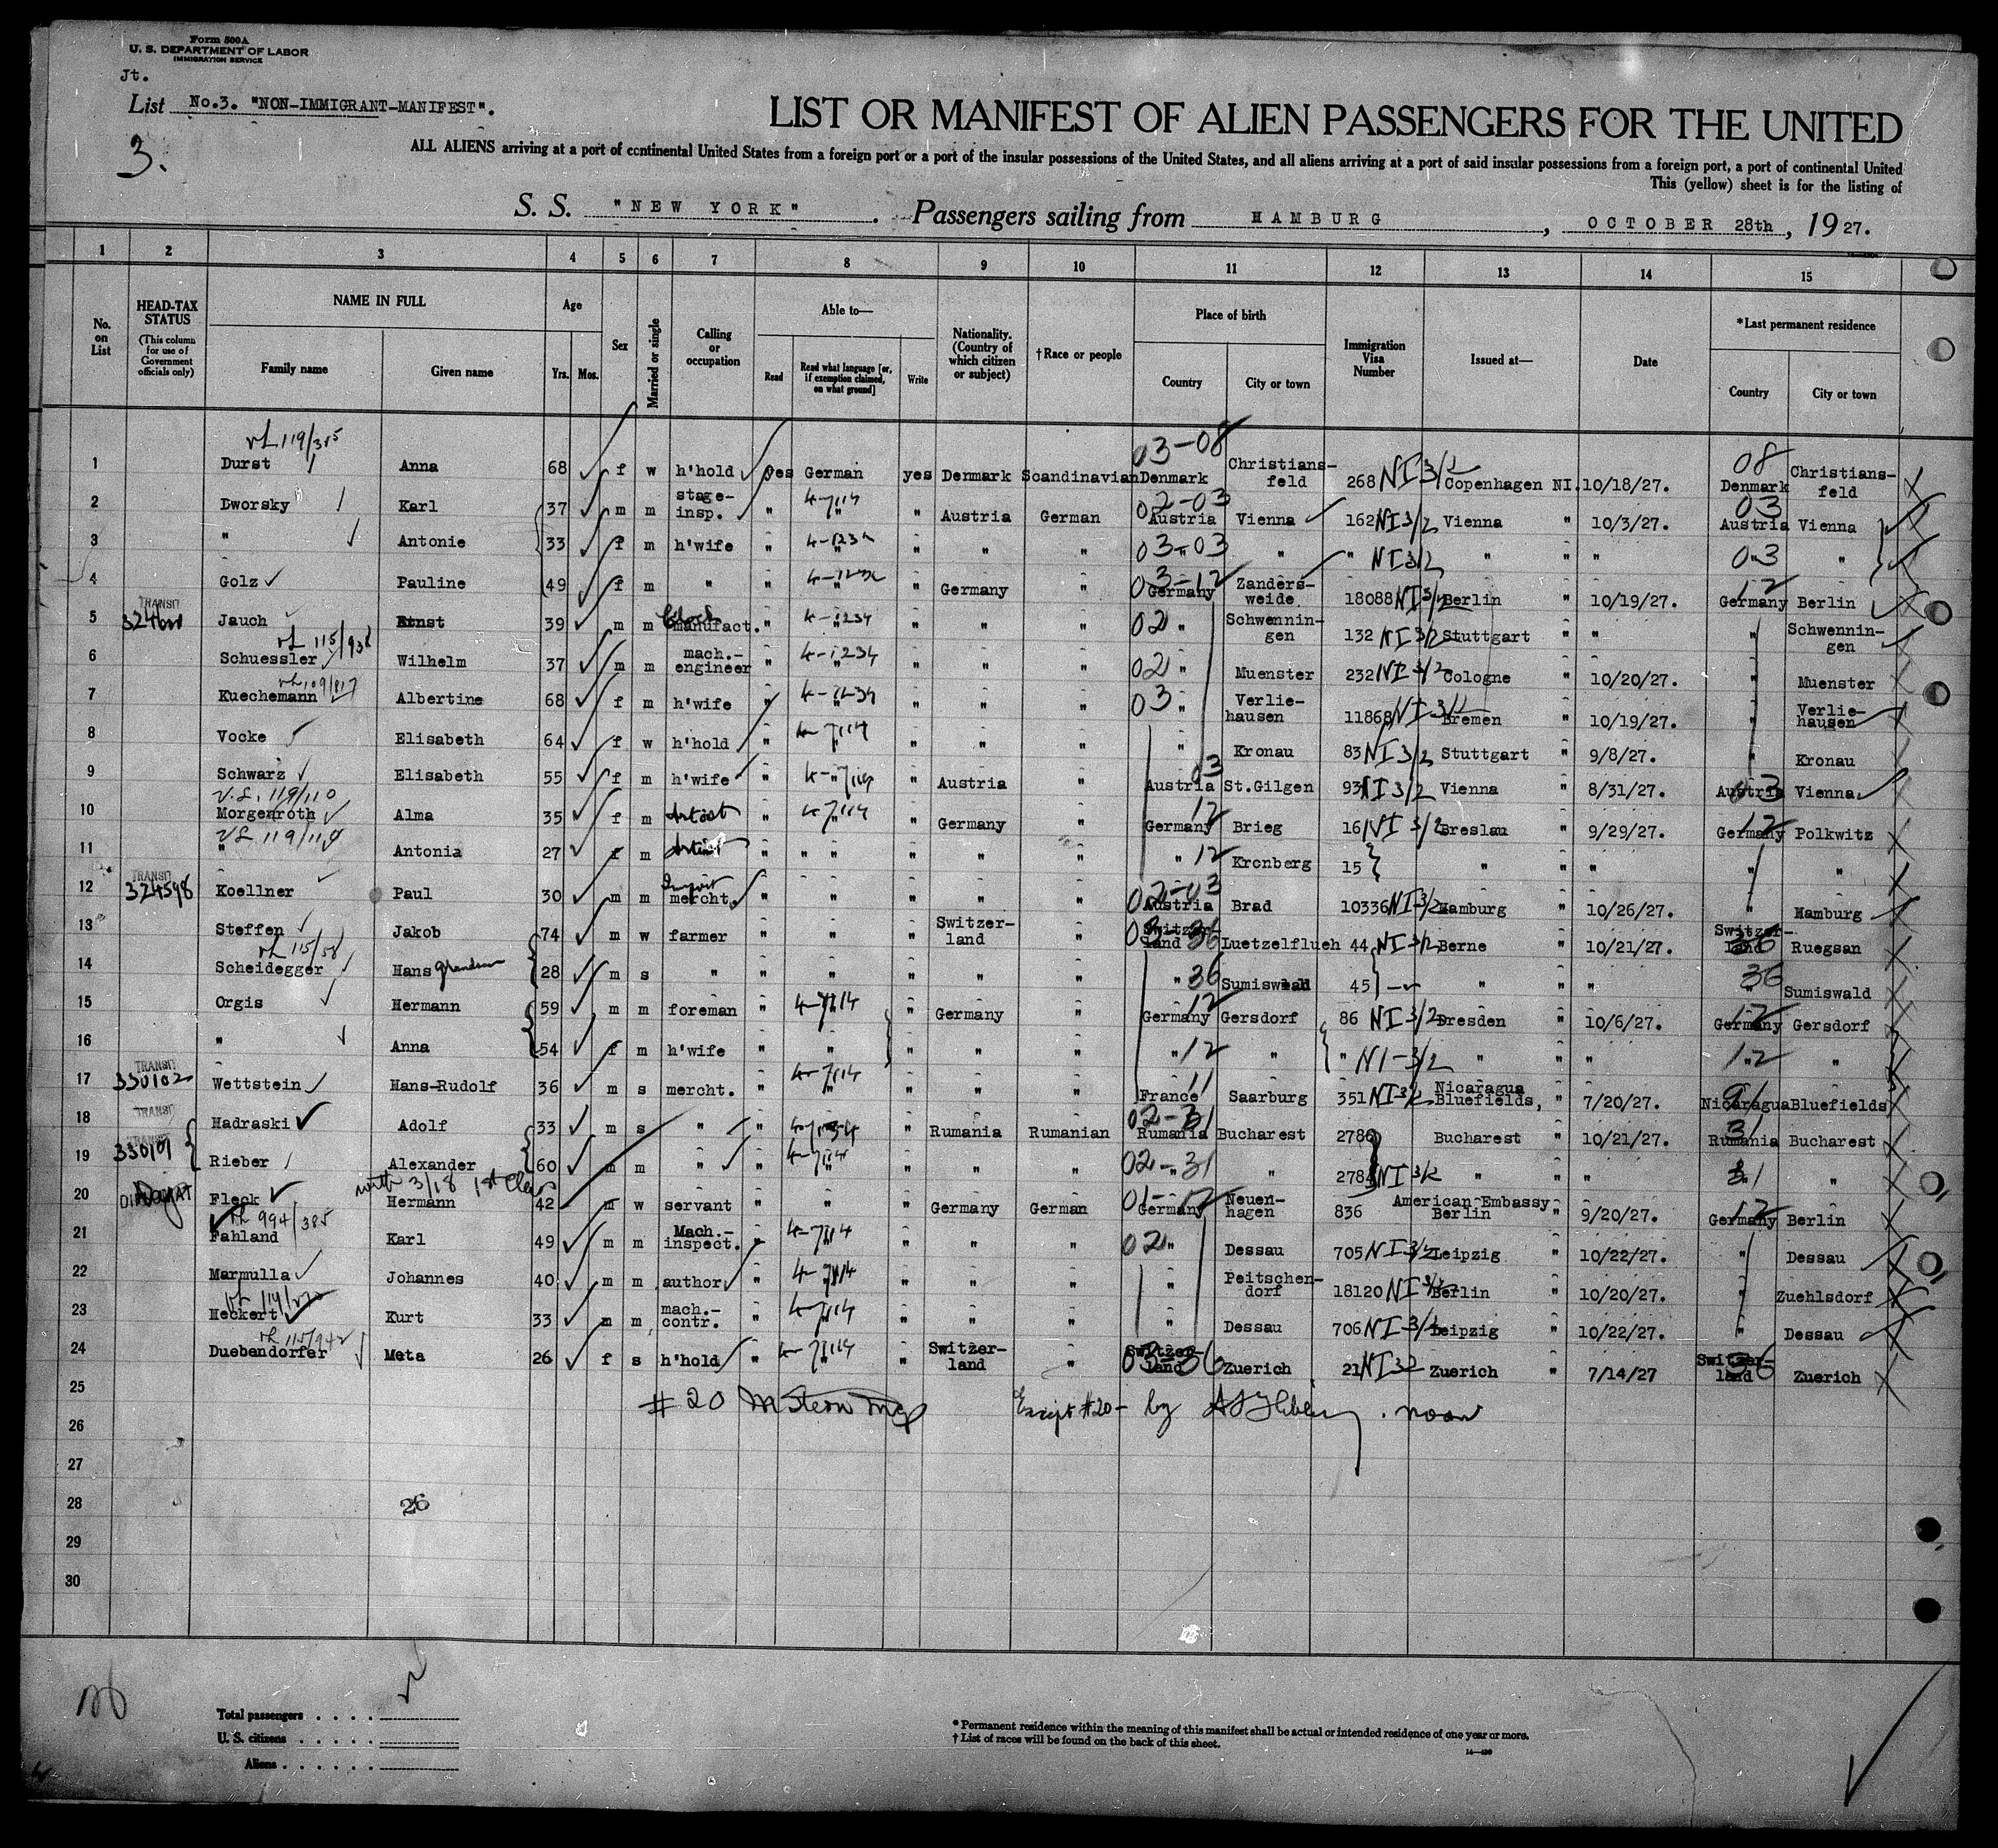 Form 500A
U. S. DEPARTMENT OF LABOR
IMMIGRATION SERVICE
Jt.
List No.3. "NON-IMMIGRANT-MANIFEST".
3.
LIST OR MANIFEST OF ALIEN PASSENGERS FOR THE UNITED
ALL ALIENS arriving at a port of continental United States from a foreign port or a port of the insular possessions of the United States, and all aliens arriving at a port of said insular possessions from a foreign port, a port of continental United
This (yellow) sheet is for the listing of
S. S. "NEW YORK". Passengers sailing from HAMBURG, OCTOBER 28th, 1927.
1 2 3 4 5 6 7 8 9 10 11 12 13 14 15
No. on List
HEAD-TAX STATUS (This column for use of Government officials only)
NAME IN FULL Family name Given name
Age Yrs. Mos.
Sex
Married or single
Calling or occupation
Able to— Read Read what language [or, if exemption claimed, on what ground] Write
Nationality. (Country of which citizen or subject)
†Race or people
Place of birth Country City or town
Immigration Visa Number
Issued at—
Date
*Last permanent residence Country City or town
1 119/315 Durst Anna 68 f w h'hold yes German yes Denmark Scandinavian 03-08 Denmark Christians-feld 268 NI 3/2 Copenhagen NI. 10/18/27. 08 Denmark Christians-feld
2 Dworsky Karl 37 m m stage-insp. " 4-7/14 " " Austria German 02-03 Austria Vienna 162 NI 3/2 Vienna " 10/3/27. 03 Austria Vienna
3 " Antonie 33 f m h'wife " " " " " 03-03 " " " NI 3/2 " " " 03 " "
4 Golz Pauline 49 f m " " " " Germany " 03-12 Germany Zanders-weide 18088 NI 3/2 Berlin " 10/19/27. 12 Germany Berlin
5 TRANSIT Jauch Ernst 39 m m manufact. " 4-1234 " " " " 02 " Schwennin-gen 132 NI 3/2 Stuttgart " " " Schwennin-gen
6 115/938 Schuessler Wilhelm 37 m m mach.-engineer " 4-1234 " " " " 02 " Muenster 232 NI 3/2 Cologne " 10/20/27. " Muenster
7 109/817 Kuechemann Albertine 68 f m h'wife " " " " " 03 " Verlie-hausen 11868 NI 3/2 Bremen " 10/19/27. " Verlie-hausen
8 Vocke Elisabeth 64 f w h'hold " 4-7/14 " " " " " Kronau 83 NI 3/2 Stuttgart " 9/8/27. " Kronau
9 Schwarz Elisabeth 55 f m h'wife " " " Austria " 03 Austria St.Gilgen 93 NI 3/2 Vienna " 8/31/27. 03 Austria Vienna
10 V.L. 119/110 Morgenroth Alma 35 f m Artist " 4-7/14 " " Germany " 12 Germany Brieg 16 NI 3/2 Breslau " 9/29/27. 12 Germany Polkwitz
11 " Antonia 27 f m Artist " " " " " " " 12 Kronberg 15 " " " " "
12 TRANSIT 324598 Koellner Paul 30 m m Import mercht. " " " " " 02-03 Austria Brad 10336 NI-3/2 Hamburg " 10/26/27. " Hamburg
13 Steffen Jakob 74 m w farmer " " " Switzer-land " 03-36 Switzer-land Luetzelflueh 44 NI-3/2 Berne " 10/21/27. 36 Switzer-land Ruegsan
14 115/58 Scheidegger Hans Grandson 28 m s " " " " " " " 36 Sumiswald 45 " " 36 " Sumiswald
15 Orgis Hermann 59 m m foreman " 4-7/14 " " Germany " 12 Germany Gersdorf 86 NI 3/2 Dresden " 10/6/27. 12 Germany Gersdorf
16 " Anna 54 f m h'wife " " " " " " 12 " " NI-3/2 " " " 12 " "
17 TRANSIT 330102 Wettstein Hans-Rudolf 36 m s mercht. " 4-7/14 " " " " 11 France Saarburg 351 NI 3/2 Nicaragua Bluefields, " 7/20/27. 91 Nicaragua Bluefields
18 TRANSIT Hadraski Adolf 33 m s " " " " Rumania Rumanian 02-31 Rumania Bucharest 2786 Bucharest " 10/21/27. 31 Rumania Bucharest
19 TRANSIT 330101 Rieber Alexander 60 m m " " 4-7/14 " " " " 02-31 " " 2784 NI 3/2 " " " 31 " "
with 3/18 1st Class
20 DIPLOMAT Fleck Hermann 42 m w servant " " " Germany German 01-12 Germany Neuen-hagen 836 American Embassy Berlin " 9/20/27. 12 Germany Berlin
21 994/385 Fahland Karl 49 m m Mach.-inspect. " 4-7/14 " " " " 02 " Dessau 705 NI 3/2 Leipzig " 10/22/27. " Dessau
22 Marmulla Johannes 40 m m author " 4-7/14 " " " " " Peitschen-dorf 18120 NI 3/2 Berlin " 10/20/27. " Zuehlsdorf
23 Heckert Kurt 33 m m mach.-contr. " 4-7/14 " " " " " Dessau 706 NI-3/2 Leipzig " 10/22/27. " Dessau
24 115/942 Duebendorfer Meta 26 f s h'hold " 4-7/14 " " Switzer-land " 03-36 Switzer-land Zuerich 21 NI 32 Zuerich " 7/14/27 36 Switzer-land Zuerich
25 # 20 M Stern Except #20 - by noon
26
27
28 26
29
30
Total passengers . . . .
U. S. citizens . . . . .
Aliens . . . . . .
* Permanent residence within the meaning of this manifest shall be actual or intended residence of one year or more.
† List of races will be found on the back of this sheet.